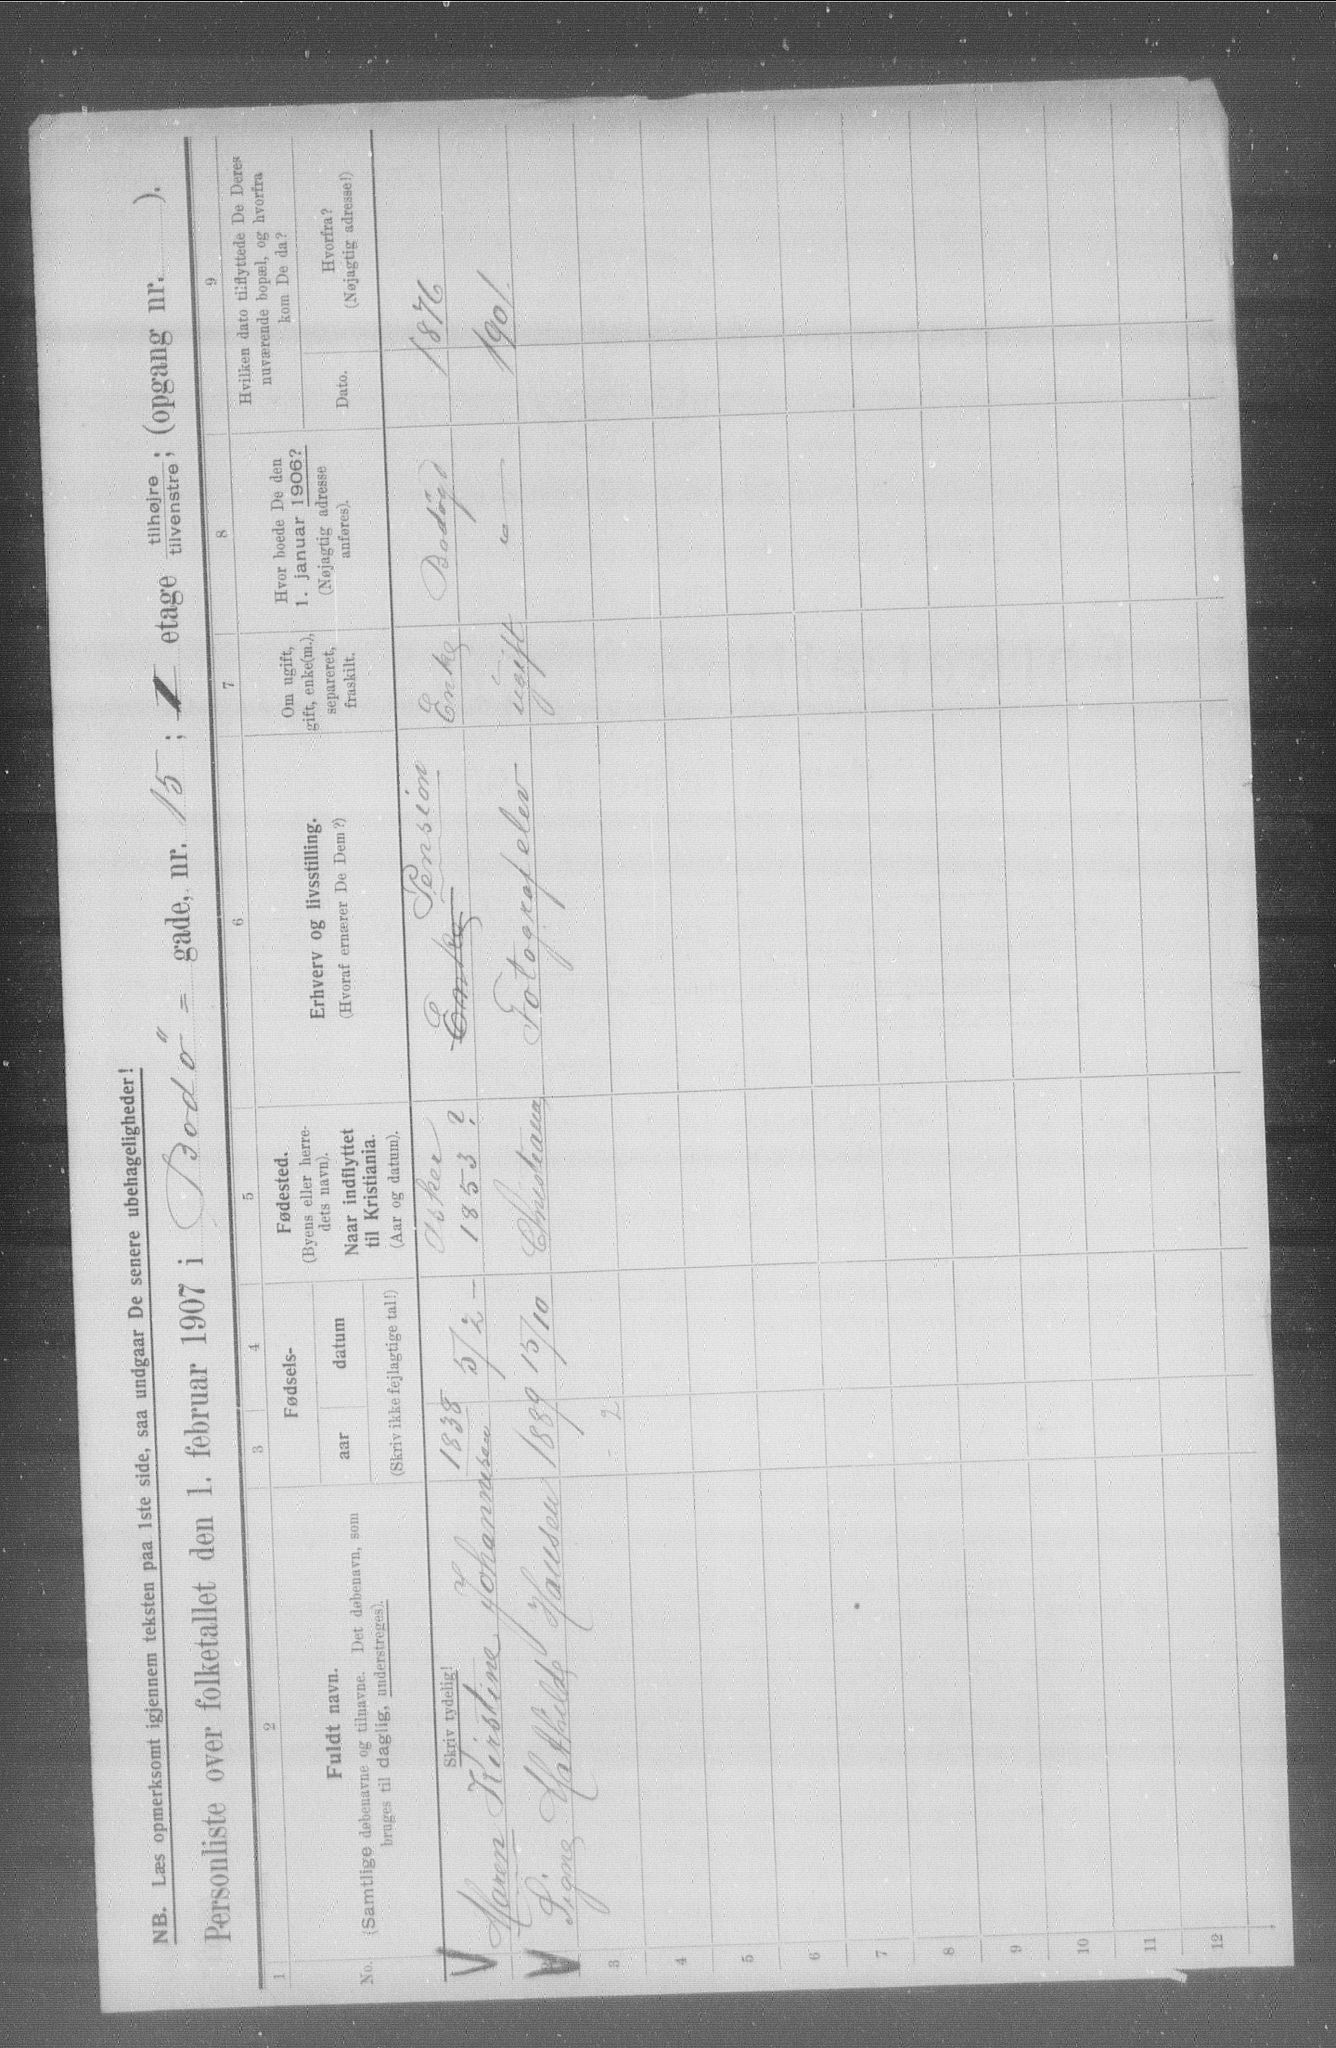 NB. Læs opmerksomt igjennem teksten paa 1ste side, saa undgaar De senere ubehageligheder!
Personliste over folketallet den 1. februar 1907 i Bodö = gade, nr. 15; I etage tilhøjre; tilvenstre; (opgang nr. ).
1 2 3 4 5 6 7 8 9
No.
Fuldt navn.
(Samtlige døbenavne og tilnavne. Det døbenavn, som
bruges til daglig, understreges).
Fødsels-
aar
datum
(Skriv ikke fejlagtige tal!)
Fødested.
(Byens eller herre-
dets navn).
Naar indflyttet
til Kristiania.
(Aar og datum).
Erhverv og livsstilling.
(Hvoraf ernærer De Dem?)
Om ugift,
gift, enke(m.),
separeret,
fraskilt.
Hvor boede De den
1. januar 1906?
(Nøjagtig adresse
anføres).
Hvilken dato tilflyttede De Deres
nuværende bopæl, og hvorfra
kom De da?
Dato.
Hvorfra?
(Nøjagtig adresse!)
Skriv tydelig!
Maren Kirstine Johannesen 1838 5/2 - Asker 1853? Enke Pension Enke Bodögd 1876
Signe Mathilde Hansen 1889 15/10 Christiania Fotografelev ugift " — 1901.
- 2
3
4
5
6
7
8
9
10
11
12